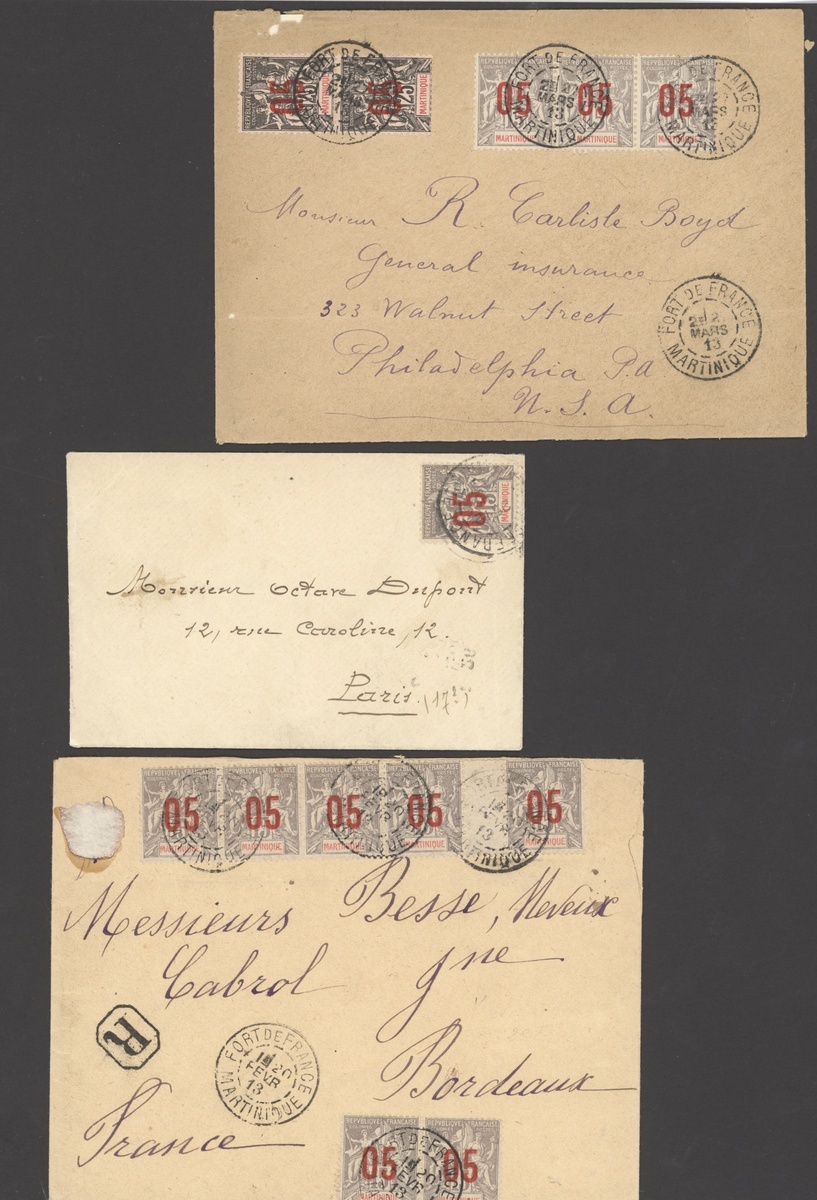 05 05 05 05 05
25 25
MARTINIQUE MARTINIQUE MARTINIQUE
FORT DE FRANCE
MARS
13
MARTINIQUE
Monsieur R. Carlisle Boyd
General insurance
323 Walnut Street
Philadelphia Pa
U.S.A.
FORT DE FRANCE
MARS
13
MARTINIQUE
05
MARTINIQUE
Monsieur Octave Dupont
12, rue Caroline, 12.
Paris
05 05 05 05 05
MARTINIQUE
Messieurs Besse, Neveux
Cabrol Jne
R
FORT DE FRANCE
20
FEVR
13
MARTINIQUE
Bordeaux
France
05 05